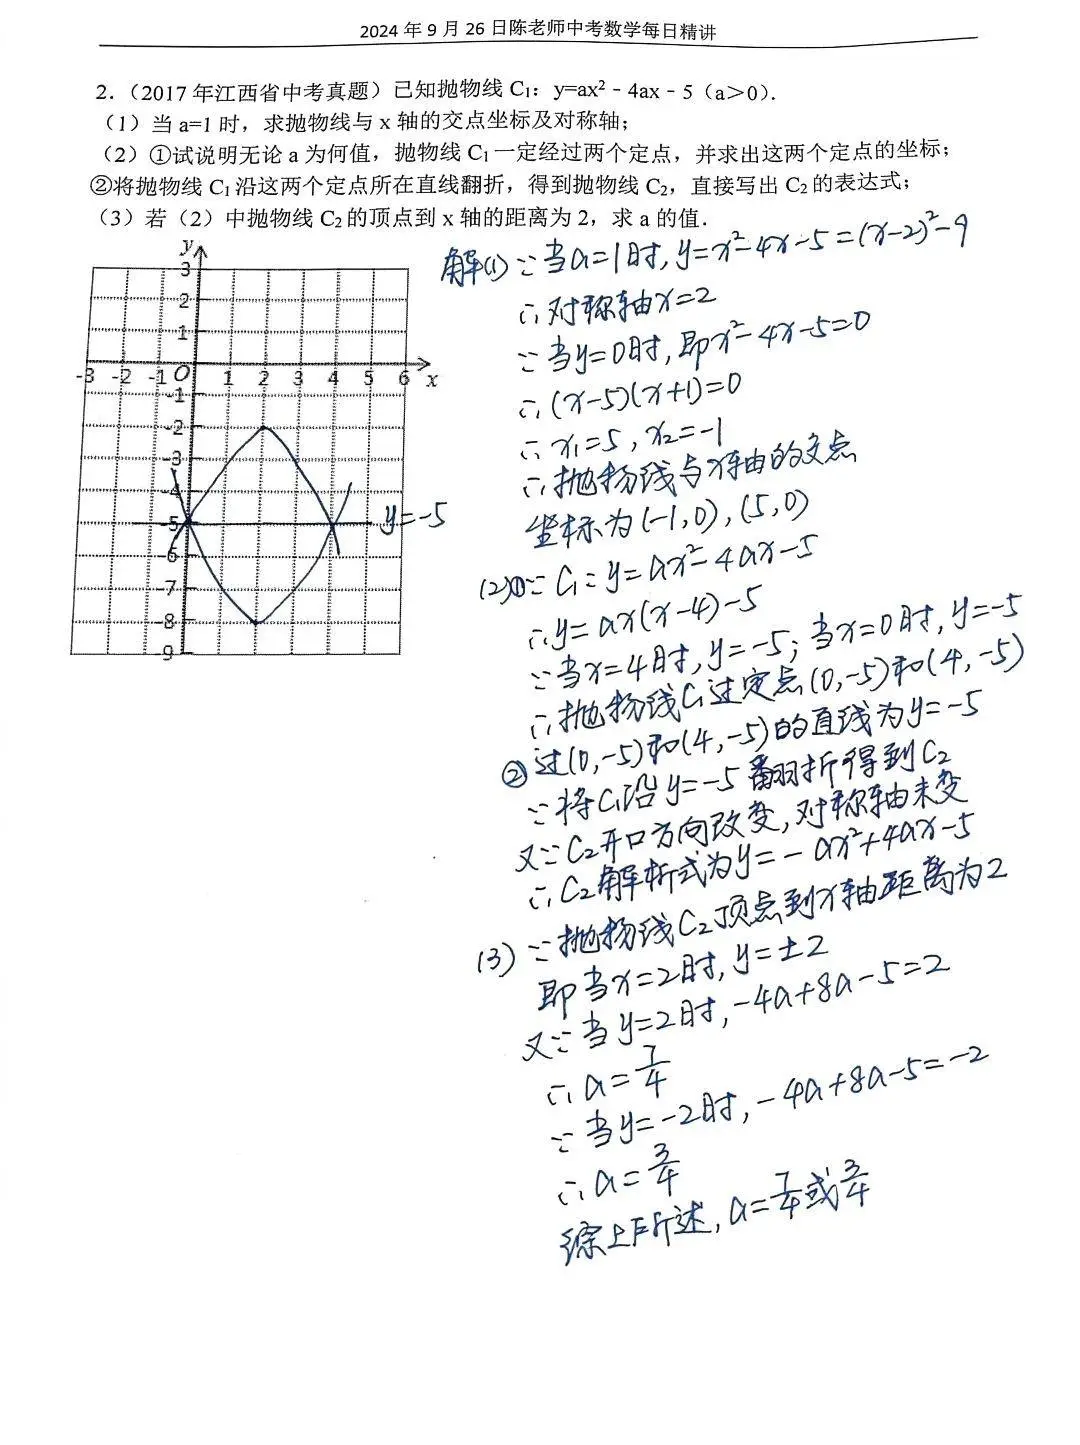 2024 年 9 月 26 日陈老师中考数学每日精讲
2.（2017 年江西省中考真题）已知抛物线 C₁：y=ax²﹣4ax﹣5（a＞0）.
（1）当 a=1 时，求抛物线与 x 轴的交点坐标及对称轴；
（2）①试说明无论 a 为何值，抛物线 C₁一定经过两个定点，并求出这两个定点的坐标；
②将抛物线 C₁沿这两个定点所在直线翻折，得到抛物线 C₂，直接写出 C₂的表达式；
（3）若（2）中抛物线 C₂的顶点到 x 轴的距离为 2，求 a 的值.
y
3
2
1
-3 -2 -1 O 1 2 3 4 5 6 x
-1
-2
-3
-4
-5
-6
-7
-8
-9
y=-5
解(1)∵当a=1时,y=x²-4x-5=(x-2)²-9
∴对称轴x=2
∵当y=0时,即x²-4x-5=0
∴(x-5)(x+1)=0
∴x₁=5,x₂=-1
∴抛物线与x轴的交点
坐标为(-1,0),(5,0)
(2)①∵C₁:y=ax²-4ax-5
∴y=ax(x-4)-5
∵当x=4时,y=-5;当x=0时,y=-5
∴抛物线C₁过定点(0,-5)和(4,-5)
②过(0,-5)和(4,-5)的直线为y=-5
∵将C₁沿y=-5翻折得到C₂
又∵C₂开口方向改变,对称轴未变
∴C₂解析式为y=-ax²+4ax-5
(3)∵抛物线C₂顶点到x轴距离为2
即当x=2时,y=±2
又∵当y=2时,-4a+8a-5=2
∴a=7/4
∵当y=-2时,-4a+8a-5=-2
∴a=3/4
综上所述,a=7/4或3/4